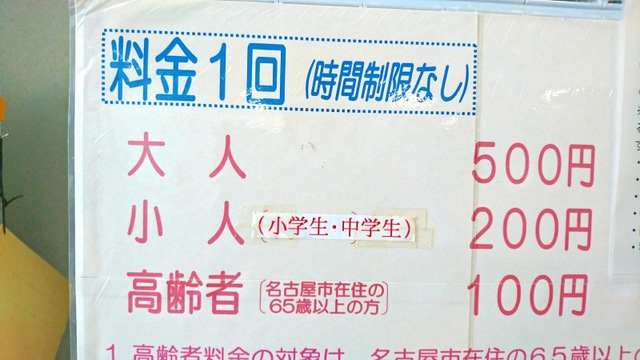 料金1回(時間制限なし)
大人 500円
小人(小学生・中学生) 200円
高齢者〔名古屋市在住の65歳以上の方〕 100円
1 高齢者料金の対象は、名古屋市在住の65歳以上